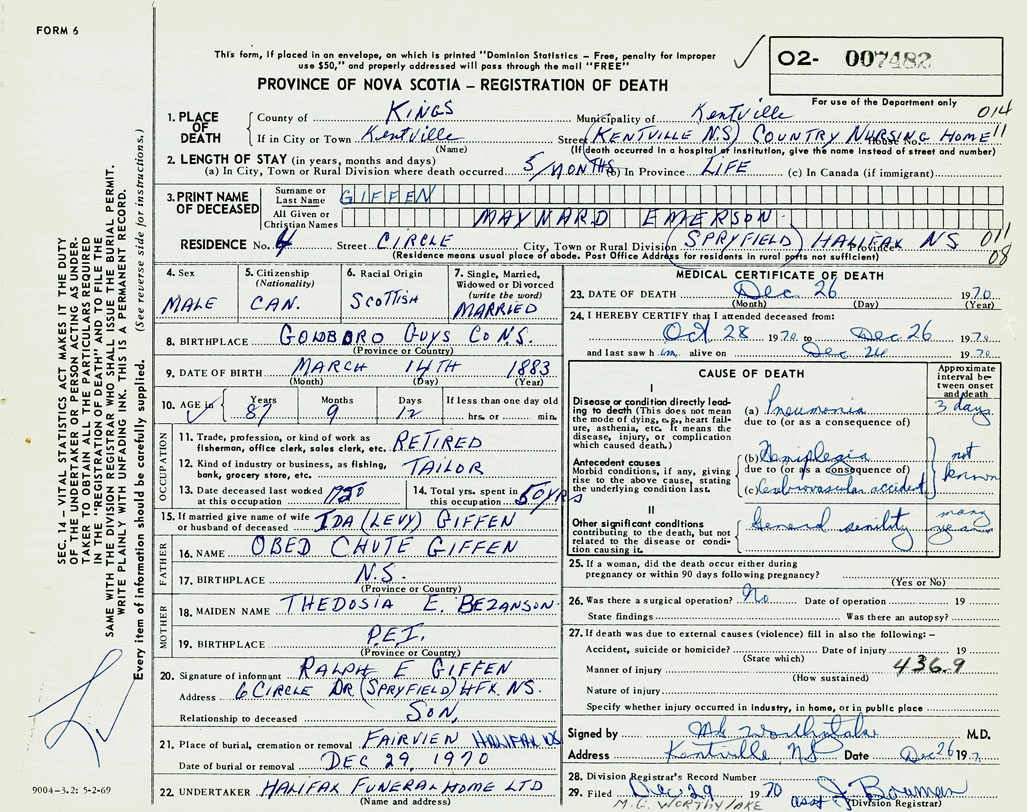 FORM 6
This form, if placed in an envelope, on which is printed "Dominion Statistics – Free, penalty for improper
use $50," and properly addressed will pass through the mail "FREE"
O2- 007482
PROVINCE OF NOVA SCOTIA – REGISTRATION OF DEATH
For use of the Department only
1. PLACE OF DEATH County of KINGS Municipality of Kentville 014
If in City or Town Kentville Street (KENTVILLE N.S) COUNTRY NURSING HOME House No. 11
(Name) (If death occurred in a hospital or institution, give the name instead of street and number)
2. LENGTH OF STAY (in years, months and days)
(a) In City, Town or Rural Division where death occurred 5 MONTHS (b) In Province LIFE (c) In Canada (if immigrant)
3. PRINT NAME OF DECEASED Surname or Last Name GIFFEN
All Given or Christian Names MAYNARD EMERSON
RESIDENCE No. 4 Street CIRCLE City, Town or Rural Division (SPRYFIELD) HALIFAX NS Province 011
(Residence means usual place of abode. Post Office Address for residents in rural parts not sufficient) 08
4. Sex MALE
5. Citizenship (Nationality) CAN.
6. Racial Origin SCOTTISH
7. Single, Married, Widowed or Divorced (write the word) MARRIED
8. BIRTHPLACE GOLDBORO GUYS CO NS.
(Province or Country)
9. DATE OF BIRTH MARCH 14TH 1883
(Month) (Day) (Year)
10. AGE in Years 87 Months 9 Days 12 If less than one day old hrs. or min.
OCCUPATION
11. Trade, profession, or kind of work as fisherman, office clerk, sales clerk, etc. RETIRED
12. Kind of industry or business, as fishing, bank, grocery store, etc. TAILOR
13. Date deceased last worked at this occupation 1950
14. Total yrs. spent in this occupation 50 YRS
15. If married give name of wife or husband of deceased IDA (LEVY) GIFFEN
FATHER
16. NAME OBED CHUTE GIFFEN
17. BIRTHPLACE N.S.
(Province or Country)
MOTHER
18. MAIDEN NAME THEDOSIA E. BEZANSON
19. BIRTHPLACE P.E.I.
(Province or Country)
20. Signature of informant RALPH E GIFFEN
Address 6 CIRCLE DR (SPRYFIELD) HFX NS.
Relationship to deceased SON,
21. Place of burial, cremation or removal FAIRVIEW HALIFAX NS
Date of burial or removal DEC 29, 1970
22. UNDERTAKER HALIFAX FUNERAL HOME LTD
(Name and address)
MEDICAL CERTIFICATE OF DEATH
23. DATE OF DEATH Dec 26 1970
(Month) (Day) (Year)
24. I HEREBY CERTIFY that I attended deceased from:
Oct 28 1970 to Dec 26 1970
and last saw him alive on Dec 26 1970
CAUSE OF DEATH
Approximate interval between onset and death
I
Disease or condition directly leading to death (This does not mean the mode of dying, e.g., heart failure, asthenia, etc. It means the disease, injury, or complication which caused death.)
(a) Pneumonia 3 days
due to (or as a consequence of)
Antecedent causes
Morbid conditions, if any, giving rise to the above cause, stating the underlying condition last.
(b) Hemiplegia
due to (or as a consequence of)
(c) Cerebrovascular accident
not known
II
Other significant conditions contributing to the death, but not related to the disease or condition causing it.
General senility many years
25. If a woman, did the death occur either during pregnancy or within 90 days following pregnancy?
(Yes or No)
26. Was there a surgical operation? No Date of operation 19
State findings Was there an autopsy?
27. If death was due to external causes (violence) fill in also the following: –
Accident, suicide or homicide? Date of injury 19
(State which)
Manner of injury 436.9
(How sustained)
Nature of injury
Specify whether injury occurred in industry, in home, or in public place
Signed by M G Worthylake M.D.
Address Kentville, NS Date Dec 26 197
28. Division Registrar's Record Number
29. Filed Dec 29 1970 asst J. Bowman
(Division Registrar)
M. G. WORTHYLAKE
SEC. 14 – VITAL STATISTICS ACT MAKES IT THE DUTY
OF THE UNDERTAKER OR PERSON ACTING AS UNDER-
TAKER TO OBTAIN ALL THE PARTICULARS REQUIRED
IN THE "REGISTRATION OF DEATH" AND TO FILE THE
SAME WITH THE DIVISION REGISTRAR WHO SHALL ISSUE THE BURIAL PERMIT.
WRITE PLAINLY WITH UNFADING INK. THIS IS A PERMANENT RECORD.
Every item of information should be carefully supplied. (See reverse side for instructions.)
9004-3.2: 5-2-69